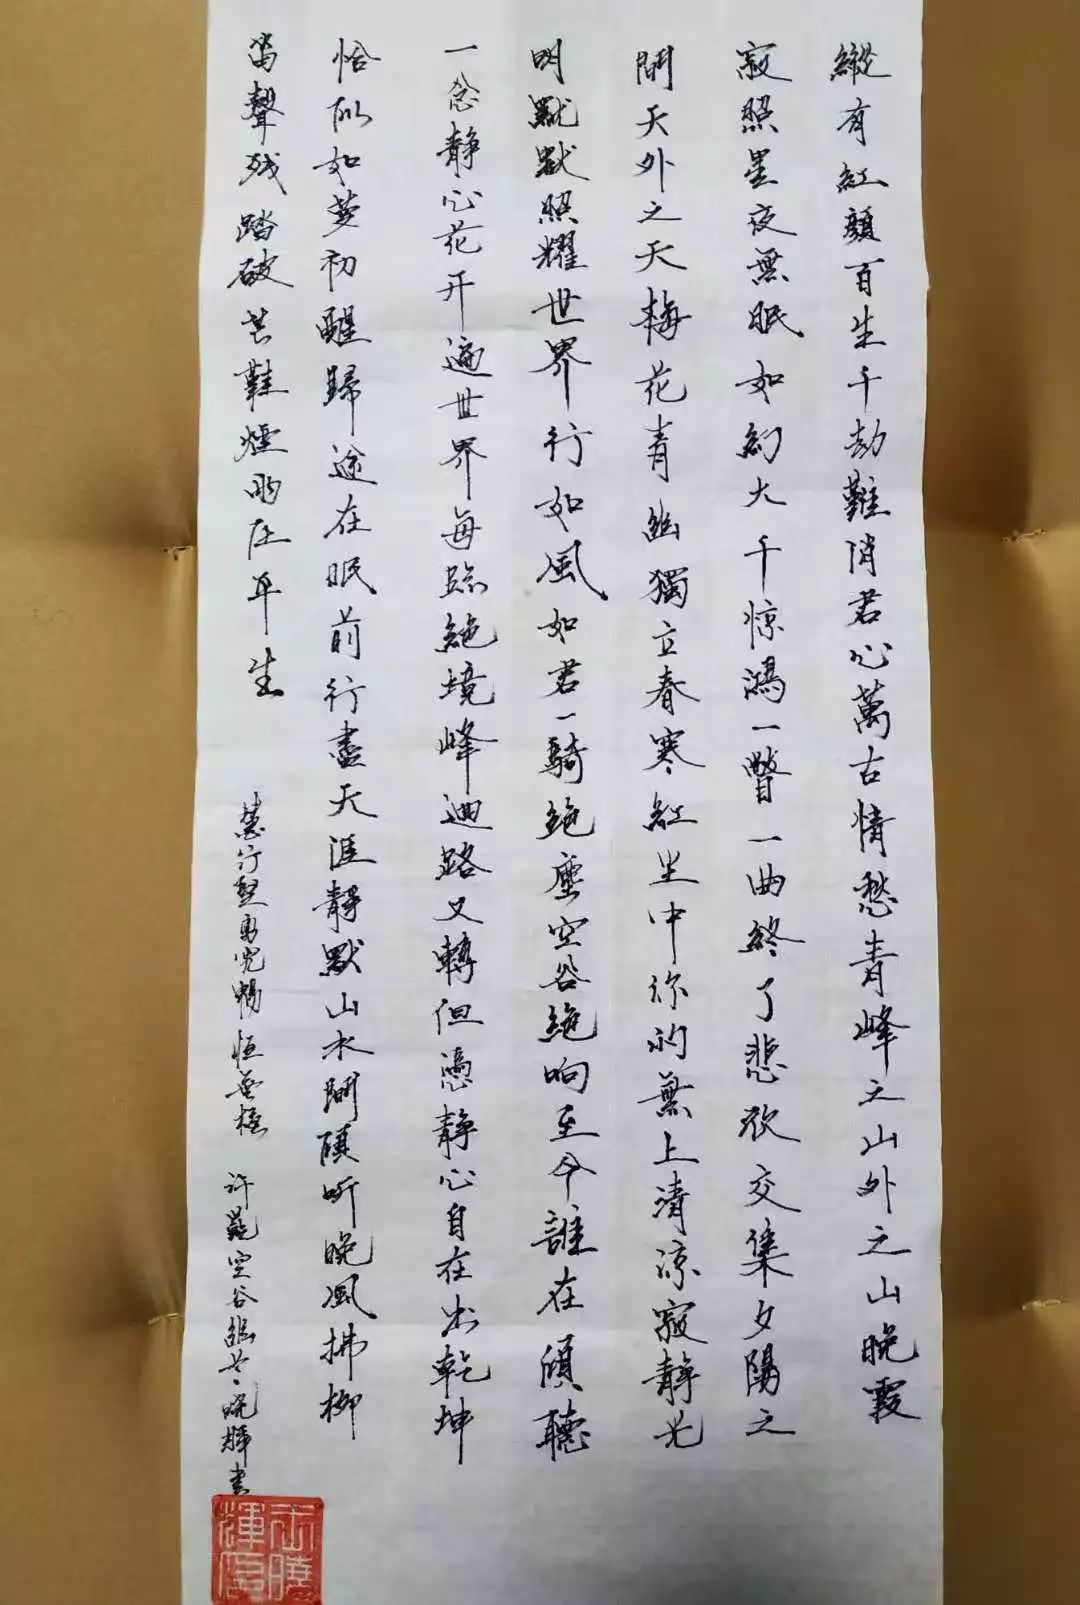 縱有紅顏百生千劫難消君心萬古情愁青峰之山外之山晚霞
寂照星夜無眠如幻大千惊鴻一瞥一曲終了悲欣交集夕陽之
間天外之天梅花青幽獨立春寒紅尘中你的無上清涼寂静光
明默默照耀世界行如風如君一騎绝塵空谷绝响至今誰在傾聽
一念静心花开遍世界每臨絶境峰迴路又轉但憑静心自在出乾坤
恰似如夢初醒歸途在眼前行盡天涯静默山水間傾听晚風拂柳
笛聲残踏破芒鞋煙雨任平生
空谷幽 晓輝書